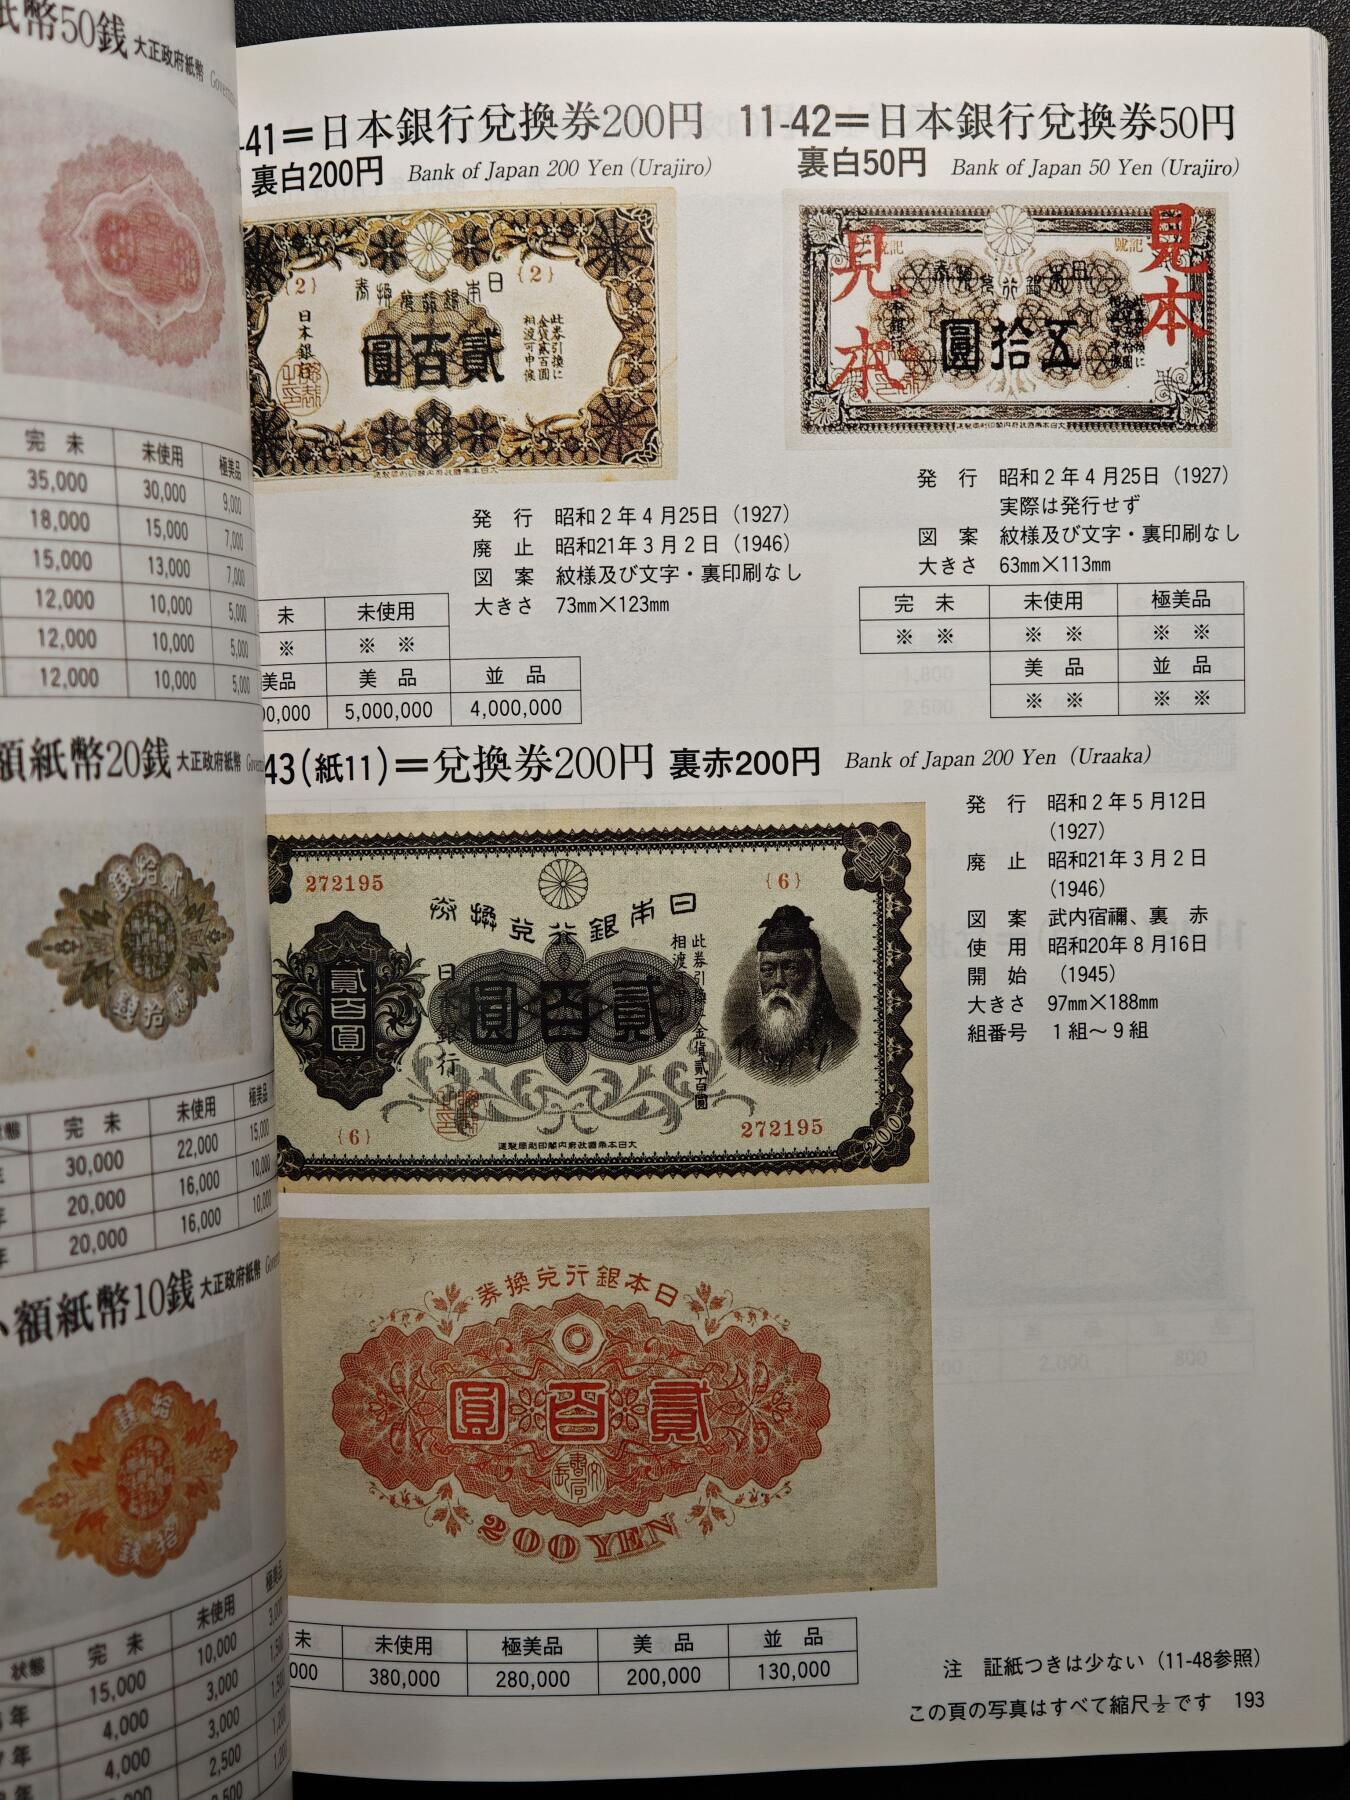 紙幣50銭 大正政府紙幣
完 未 未使用 極美品
35,000 30,000 9,000
18,000 15,000 7,000
15,000 13,000 7,000
12,000 10,000 5,000
12,000 10,000 5,000
12,000 10,000 5,000
額紙幣20銭 大正政府紙幣
拾貳
錢
貳拾
完 未 未使用 極美品
30,000 22,000 15,000
20,000 16,000 10,000
20,000 16,000 10,000
額紙幣10銭 大正政府紙幣
拾
錢
状態 完 未 未使用 極美品
15,000 10,000 3,000
4,000 3,000
7年 4,000 3,000
2,500
-41=日本銀行兌換券200円
裏白200円 Bank of Japan 200 Yen (Urajiro)
{2} {2}
日本銀行兌換券
圓百貳
此券引換に
金貨貳百圓
相渡可申候
日本銀行
大日本帝國政府内閣印刷局製造
発 行 昭和2年4月25日(1927)
廃 止 昭和21年3月2日(1946)
図 案 紋様及び文字・裏印刷なし
大きさ 73mm×123mm
未 未使用
※ ※ ※
美品 美 品 並 品
00,000 5,000,000 4,000,000
11-42=日本銀行兌換券50円
裏白50円 Bank of Japan 50 Yen (Urajiro)
見本 見本
記號
圓拾五
発 行 昭和2年4月25日(1927)
実際は発行せず
図 案 紋様及び文字・裏印刷なし
大きさ 63mm×113mm
完 未 未使用 極美品
※ ※ ※ ※ ※ ※
美 品 並 品
※ ※ ※ ※
43(紙11)=兌換券200円 裏赤200円 Bank of Japan 200 Yen (Uraaka)
272195 {6}
日本銀行兌換券
此券引換に金貨貳百圓
貳百圓
圓百貳
日本銀行
{6} 272195
大日本帝國政府内閣印刷局製造
200
発 行 昭和2年5月12日
(1927)
廃 止 昭和21年3月2日
(1946)
図 案 武内宿禰、裏 赤
使 用 昭和20年8月16日
開 始 (1945)
大きさ 97mm×188mm
組番号 1組~9組
券換兌行銀本日
圓百貳
200 YEN
未 未使用 極美品 美 品 並 品
000 380,000 280,000 200,000 130,000
注 証紙つきは少ない(11-48参照)
この頁の写真はすべて縮尺½です 193